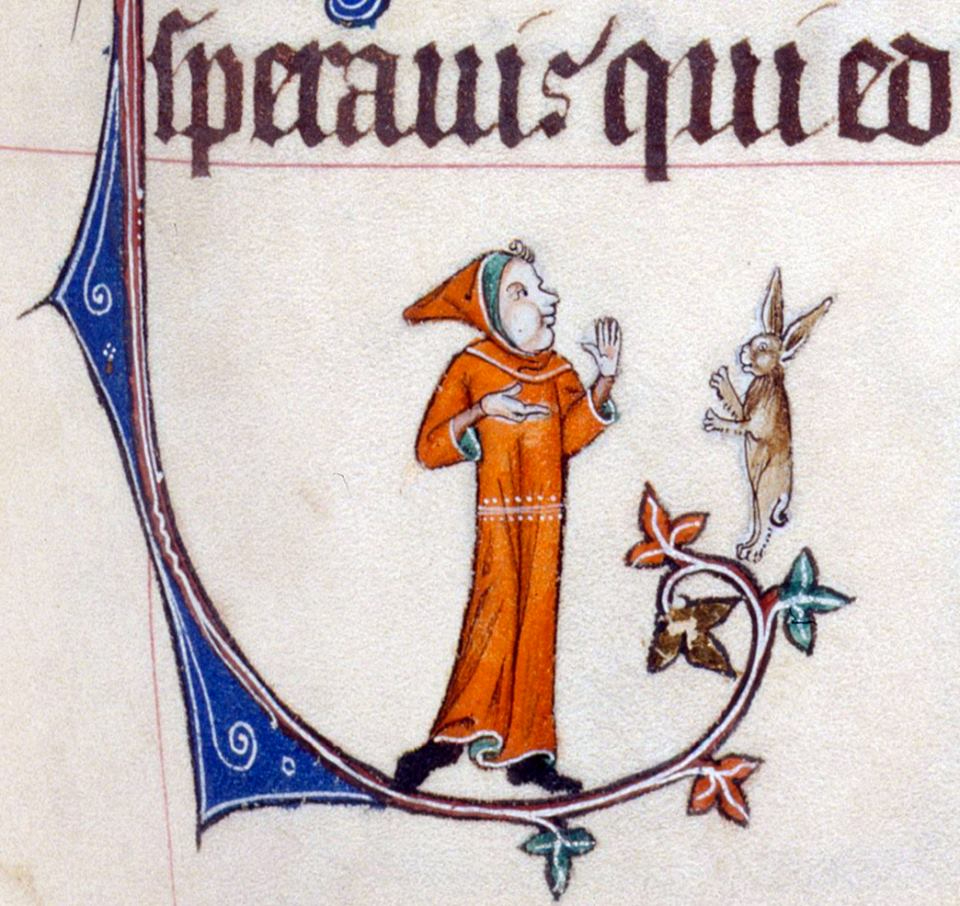 ſperauis qui ed